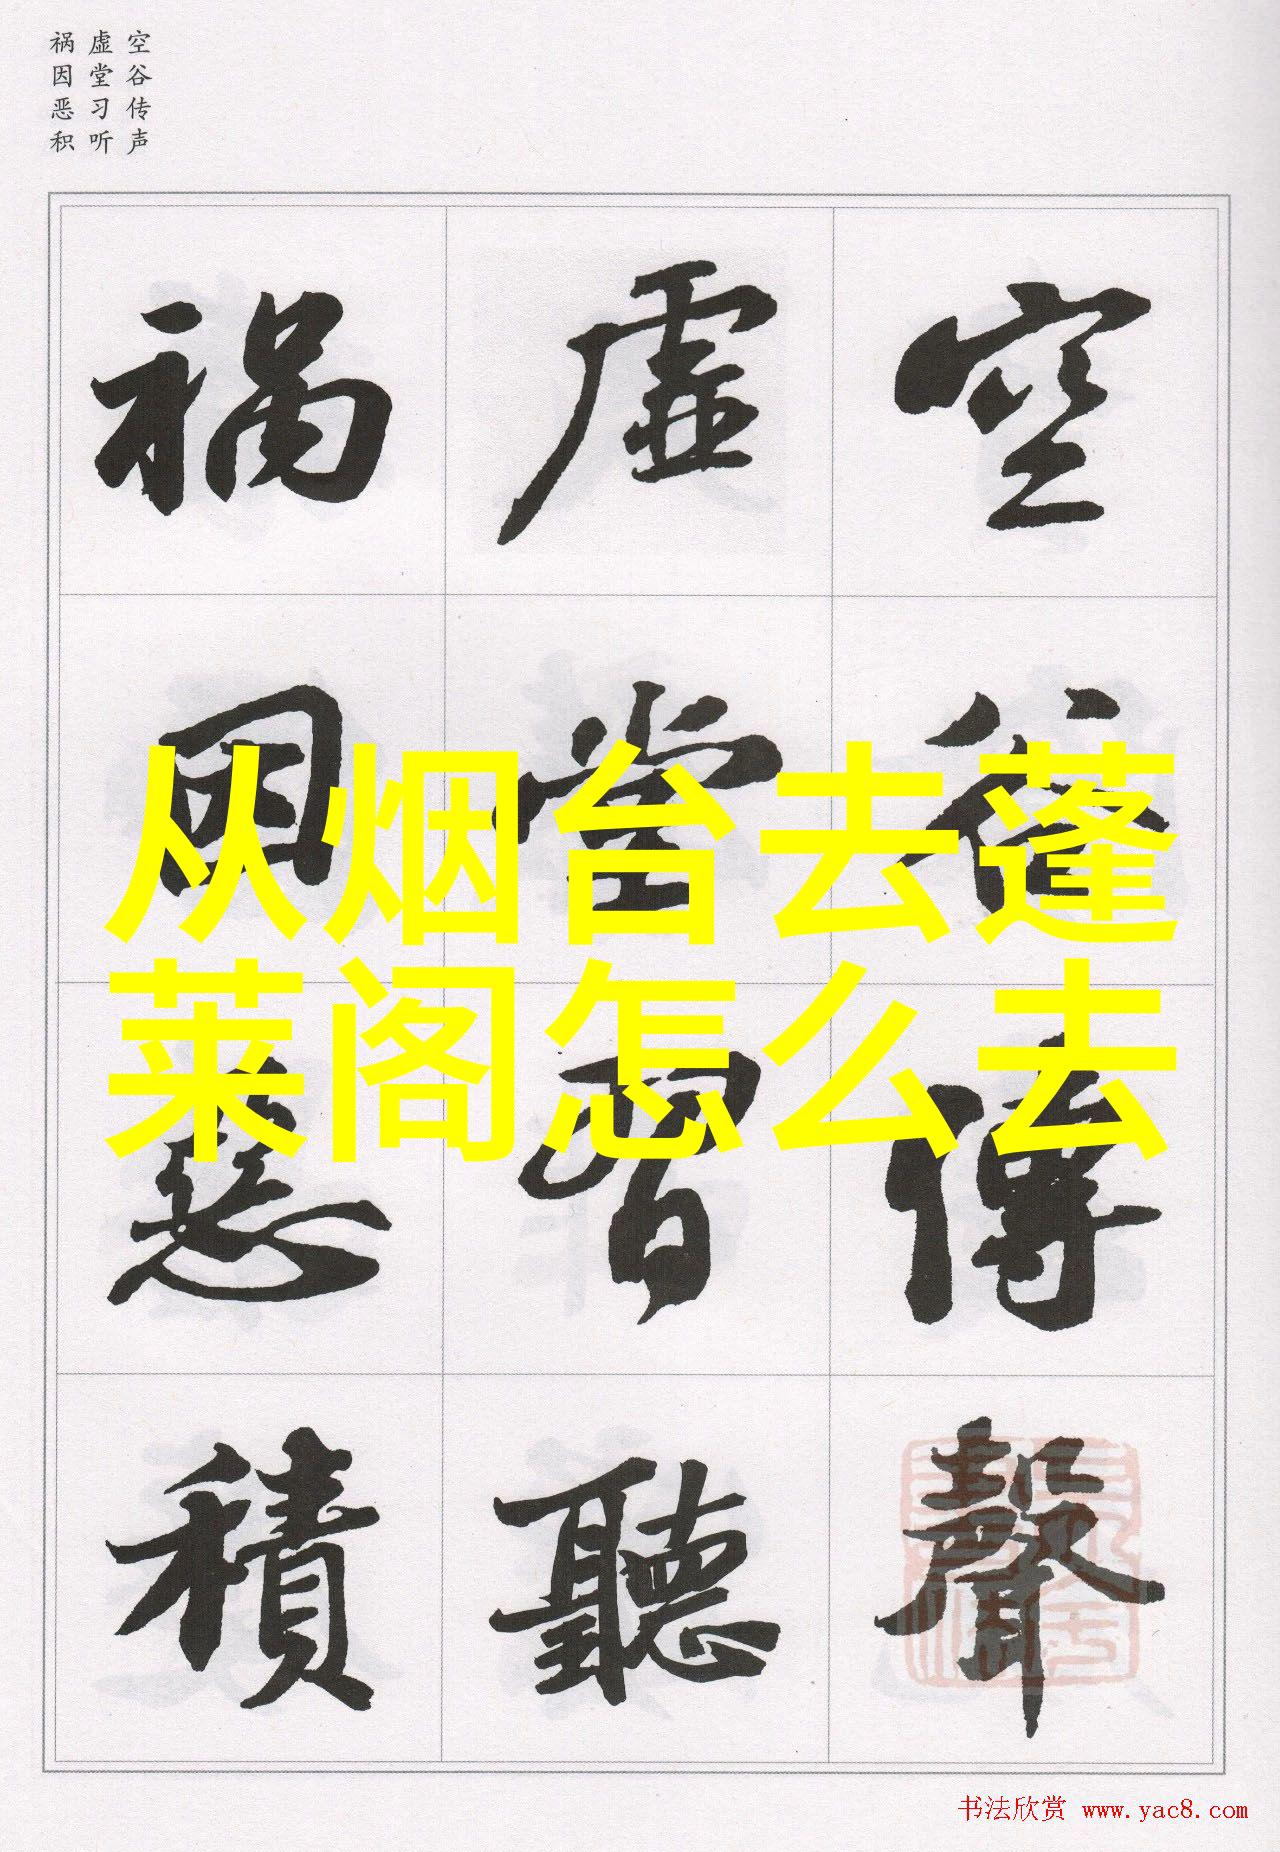 空谷传声
虚堂习听
祸因恶积
空谷傳聲
虚堂習聽
禍因惡積
从烟台去蓬
莱阁怎么去
书法欣赏 www.yac8.com